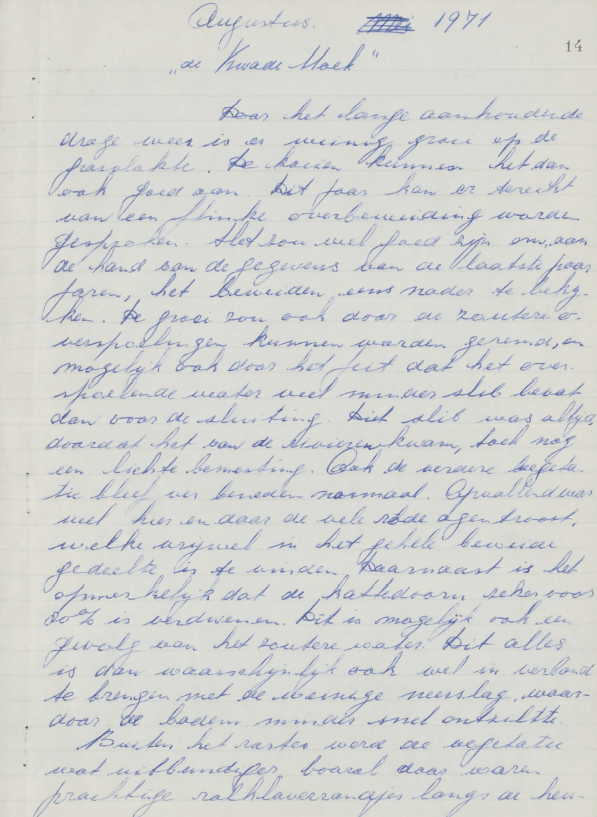 Augustus. 1971
14
"de Kwade Hoek"
Door het lange aanhoudende
droge weer is er weinig groei op de
grasvlakte. De koeien kunnen het dan
ook goed aan. Dit jaar kan er terecht
van een flinke overbeweiding worden
gesproken. Het zou wel goed zijn om, aan
de hand van de gegevens van de laatste paar
jaren, het beweiden eens nader te bekij-
ken. De groei zou ook door de zoutere o-
verspoelingen kunnen worden geremd, en
mogelijk ook door het feit dat het over-
spoelende water veel minder slib bevat
dan voor de sluiting. Dit slib was altijd,
doordat het van de rivieren kwam, toch nog
een lichte bemesting. Ook de verdere vegeta-
tie bleef ver beneden normaal. Opvallend was
wel hier en daar de vele rode ogentroost,
welke vrijwel in het gehele beweide
gedeelte is te vinden. Daarnaast is het
opmerkelijk dat de kattedoorn zeker voor
80% is verdwenen. Dit is mogelijk ook een
gevolg van het zoutere water. Dit alles
is dan waarschijnlijk ook wel in verband
te brengen met de weinige neerslag, waar-
door de bodem minder snel ontziltte.
Buiten het raster werd de vegetatie
wat uitbundiger, vooral daar waren
prachtige rolklaverrandjes langs de heu-